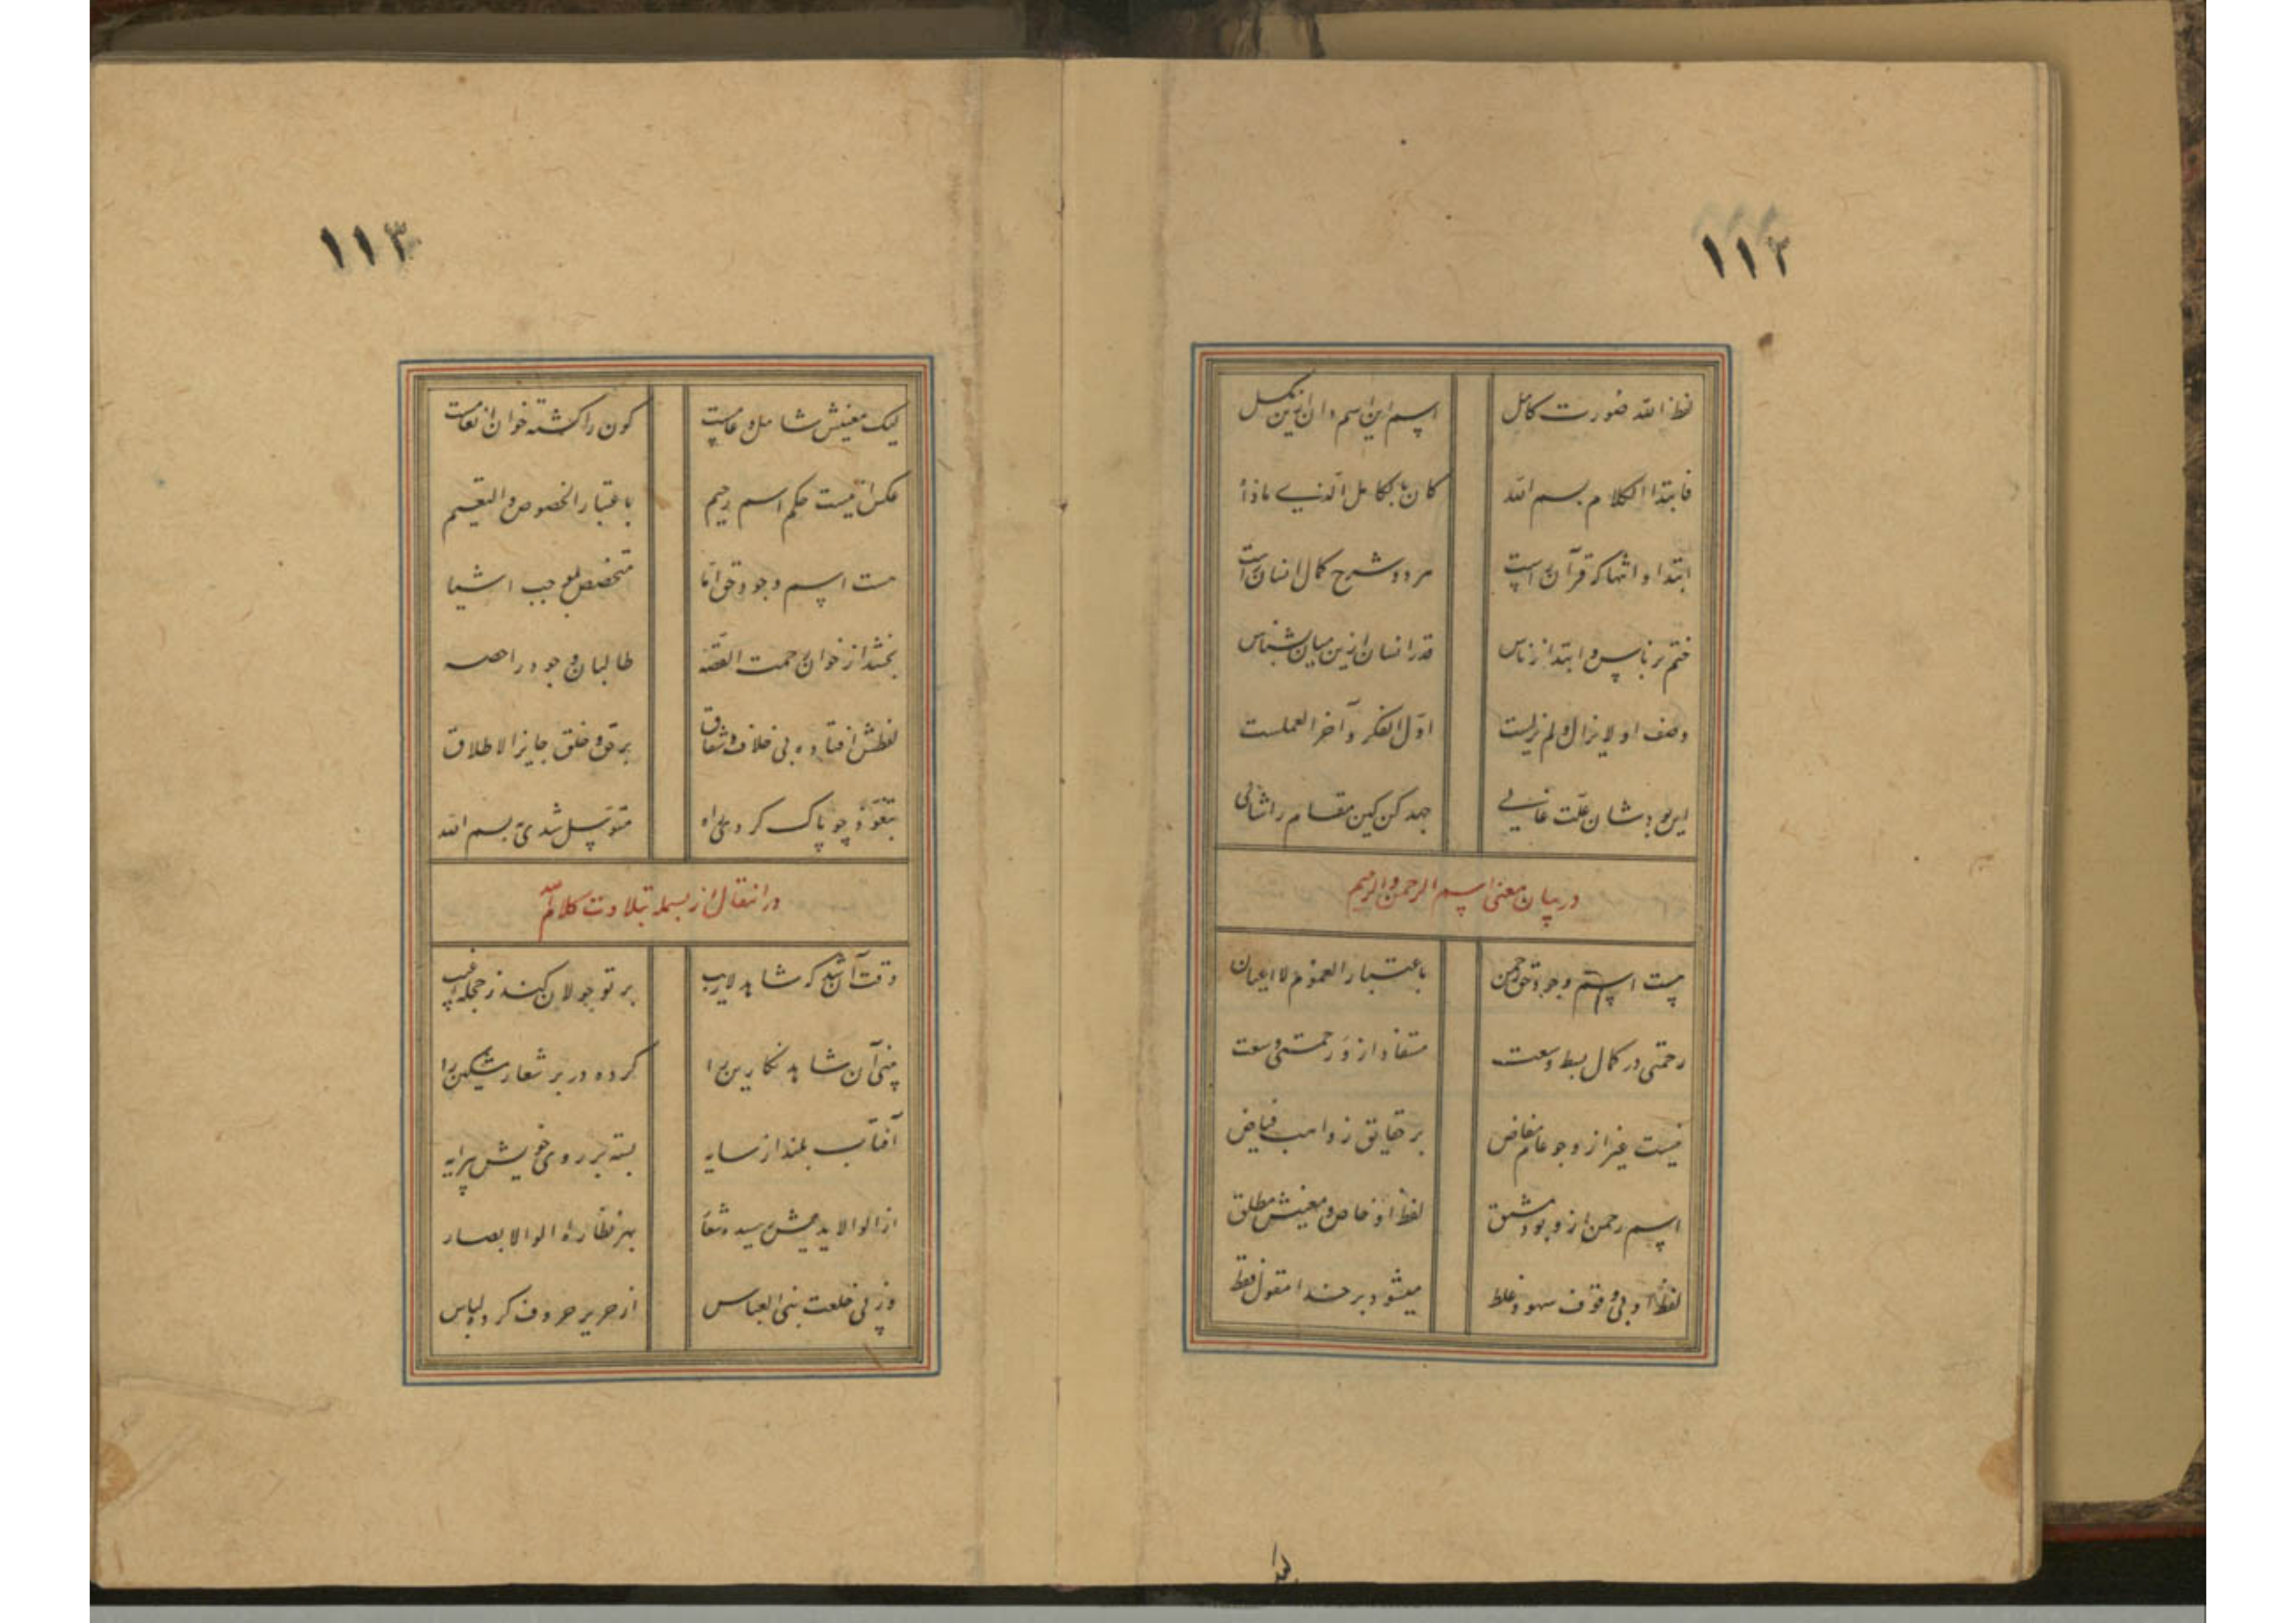 ۱۱۲
لفظ الله صورت کامل اسم این اسم و ان ازین مکمل
فابتدا الکلام بسم الله کان بالکامل الذی ماذا
ابتدا و انتها که قرآن راست هر دو شرح کمال انسان است
ختم بر ناس و ابتدا از ناس قدر انسان ازین میان بشناس
وصف او لایزال و لم یزلست اول الفکر و آخر العملست
این بود شان علت غایی جهد کن کین مقام را شائی
در بیان معنی اسم الرحمن و الرحیم
چیست اسم وجود حق رحمن باعتبار العموم لاعیان
رحمتی در کمال بسط و سعت مستفاد از و رحمتی وسعت
نیست غیر از وجود عام مفاض بر حقایق ز واهب فیاض
اسم رحمن از و بود مشتق لفظ او خاص و معنیش مطلق
لفظ او بی وقوف سهو و غلط میشود بر خدا مقول فقط
۱۱۳
لیک معنیش شامل و عامست کون را گشته خوان انعامست
عکس آنیست حکم اسم رحیم باعتبار الخصوص و التعمیم
هست اسم وجود حق اما متخصص بموجب اشیا
بخشد از خوان رحمت القصه طالبان وجود را حصه
لفظش افتاده بی خلاف و شقاق بر حق و خلق جایز الاطلاق
بتعوذ چو پاک کردی راه متوسل شدی بسم الله
در انتقال از بسمله بتلاوت کلام الله
وقت آن شد که شاهد لاریب بر تو جولان کند ز حجله غیب
بینی آن شاهد نگارین را کرده در بر شعار مشکین را
آفتاب بلند از سایه بسته بر روی خویش پیرایه
از الوالاید بهر نظاره الوالابصار
وز پی خلعت بنی العباس از حریر حروف کرده لباس